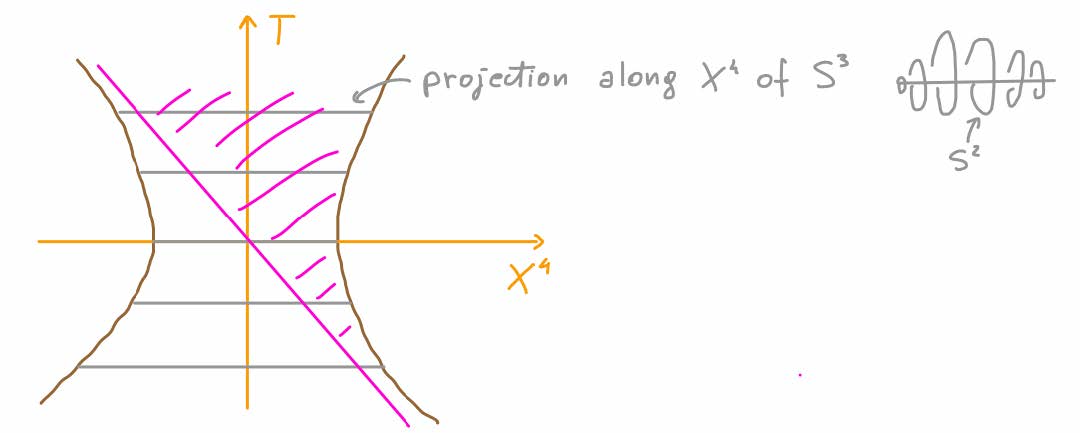 T
projection along X⁴ of S³
S²
X⁴